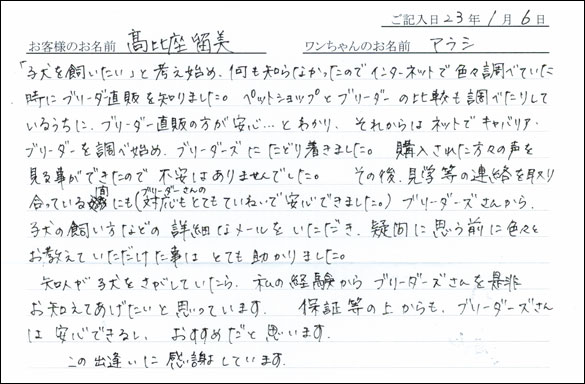 ご記入日 23年 1月 6日
お客様のお名前 髙比座 留美 ワンちゃんのお名前 アラシ
「子犬を飼いたい」と考え始め、何も知らなかったのでインターネットで色々調べていた
時にブリーダー直販を知りました。ペットショップとブリーダーの比較も調べたりして
いるうちに、ブリーダー直販の方が安心…とわかり、それからはネットでキャバリア・
ブリーダーを調べ始め、ブリーダーズにたどり着きました。購入された方々の声を
見る事ができたので不安はありませんでした。その後、見学等の連絡を取り
合っている間にも(ブリーダーさんの対応もとてもていねいで安心できました。)ブリーダーズさんから、
子犬の飼い方などの詳細なメールをいただき、疑問に思う前に色々と
お教えていただけた事はとても助かりました。
知人が子犬をさがしていたら、私の経験からブリーダーズさんを是非
お知えてあげたいと思っています。保証等の上からも、ブリーダーズさん
は安心できるし、おすすめだと思います。
この出逢いに感謝しています。